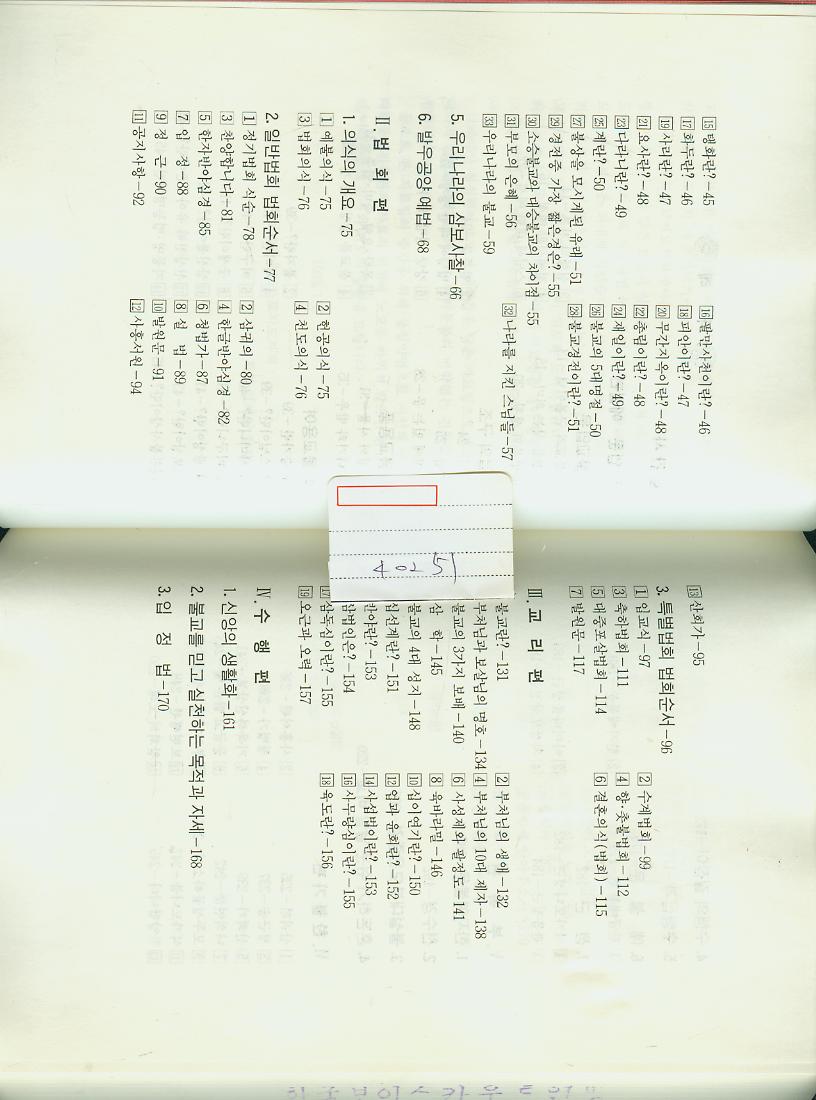 15 탱화란?-45
16 팔만사천이란?-46
17 화두란?-46
18 피안이란?-47
19 사리란?-47
20 무간지옥이란?-48
21 요사란?-48
22 총림이란?-48
23 다라니란?-49
24 재일이란?-49
25 계란?-50
26 불교의 5대명절-50
27 불상을 모시게된 유래-51
28 불교경전이란?-51
29 경전중 가장 짧은경은?-55
30 소승불교와 대승불교의 차이점-55
31 부모의 은혜-56
32 나라를 지킨 스님들-57
33 우리나라의 불교-59
5. 우리나라의 삼보사찰-66
6. 발우공양 예법-68
Ⅱ. 법 회 편
1. 의식의 개요-75
1 예불의식-75
2 헌공의식-75
3 법회의식-76
4 천도의식-76
2. 일반법회 법회순서-77
1 정기법회 식순-78
2 삼귀의-80
3 찬양합니다-81
4 한글반야심경-82
5 한자반야심경-85
6 청법가-87
7 입 정-88
8 설 법-89
9 정 근-90
10 발원문-91
11 공지사항-92
12 사홍서원-94
13 산회가-95
3. 특별법회 법회순서-96
1 입교식-97
2 수계법회-99
3 축하법회-111
4 향·촛불법회-112
5 대중포살법회-114
6 결혼의식(법회)-115
7 발원문-117
Ⅲ. 교 리 편
불교란?-131
2 부처님의 생애-132
부처님과 보살님의 명호-134
4 부처님의 10대 제자-138
불교의 3가지 보배-140
6 사성제와 팔정도-141
삼 학-145
8 육바라밀-146
불교의 4대 성지-148
10 십이연기란?-150
십선계란?-151
12 업과 윤회란?-152
반야란?-153
14 사섭법이란?-153
삼법인은?-154
16 사무량심이란?-155
17 삼독심이란?-155
18 육도란?-156
19 오근과 오력-157
Ⅳ. 수 행 편
1. 신앙의 생활화-161
2. 불교를 믿고 실천하는 목적과 자세-168
3. 입 정 법-170
40251